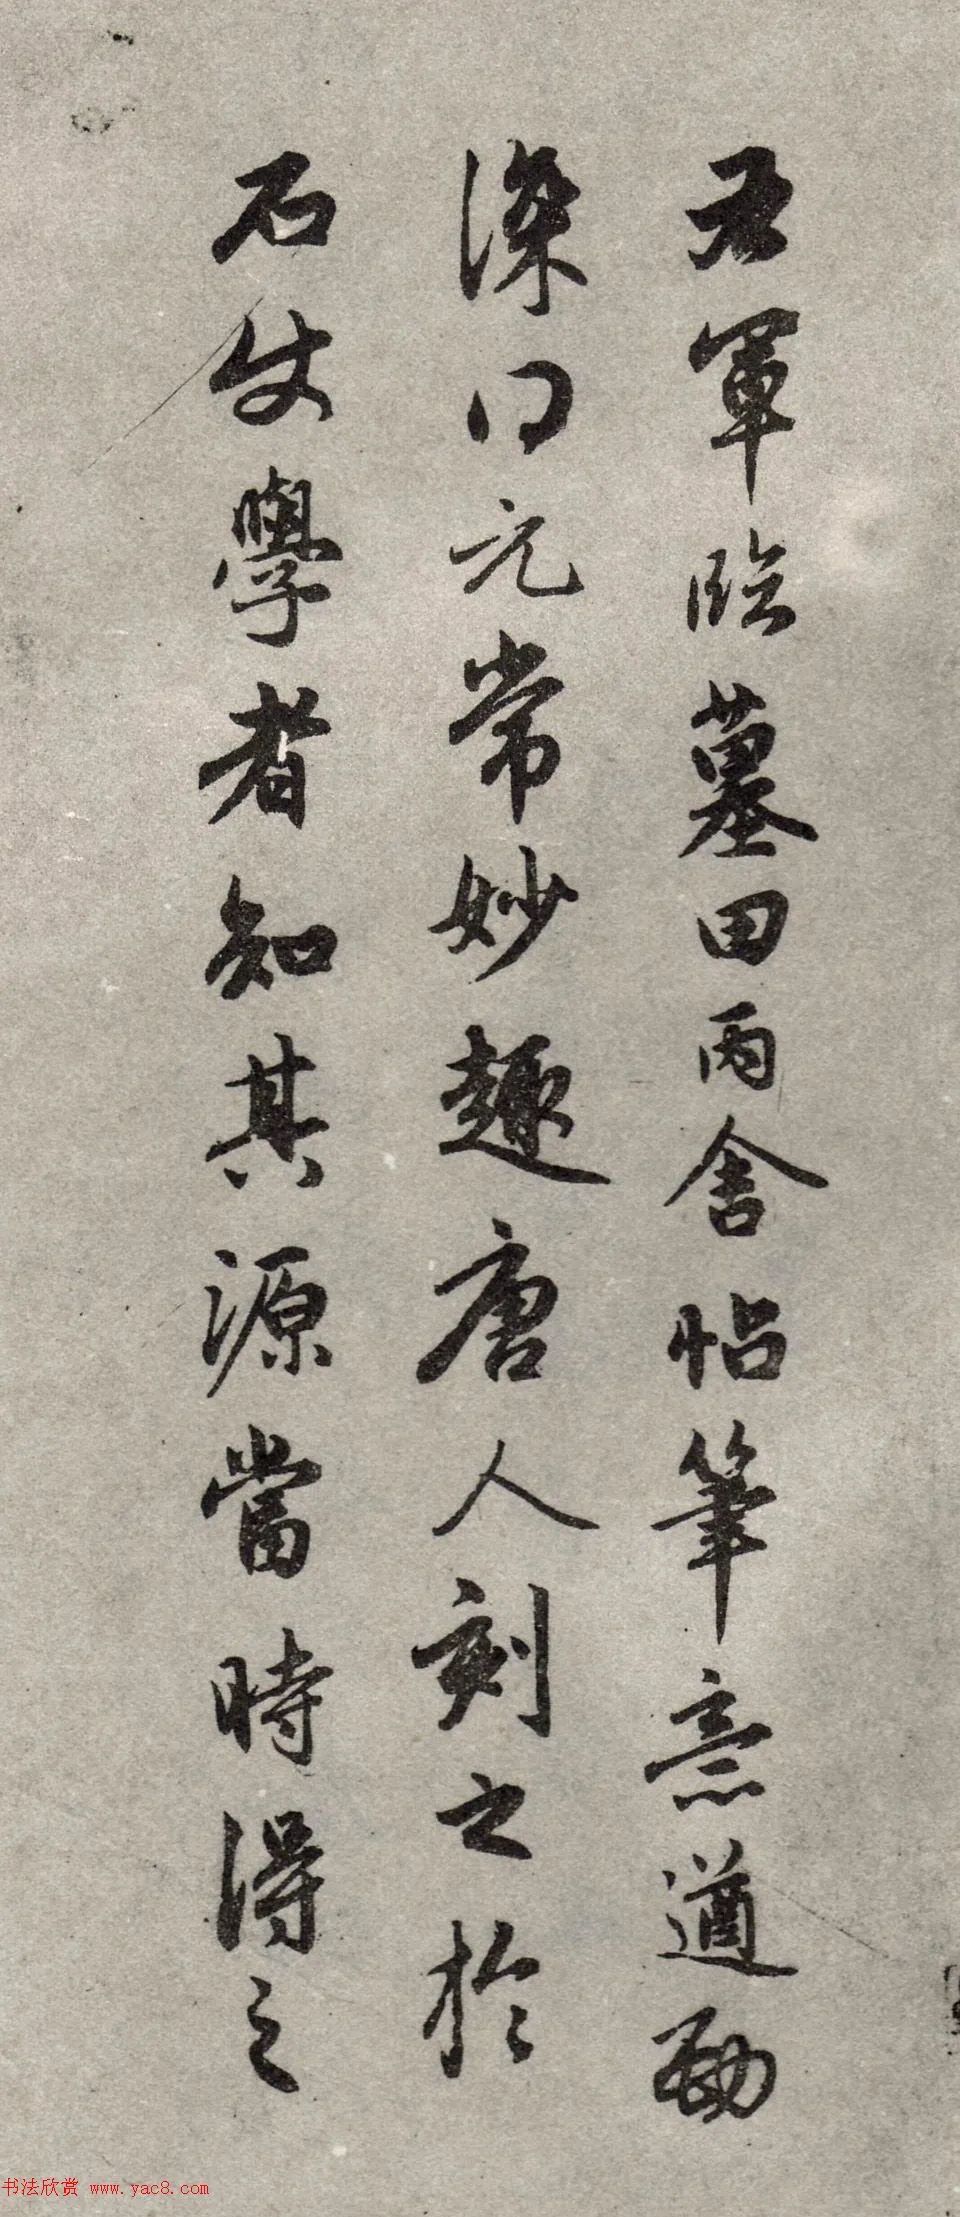 右軍臨墓田丙舍帖筆意遒勁
深得元常妙趣唐人刻之於
石使學者知其源當時得之
书法欣赏 www.yac8.com